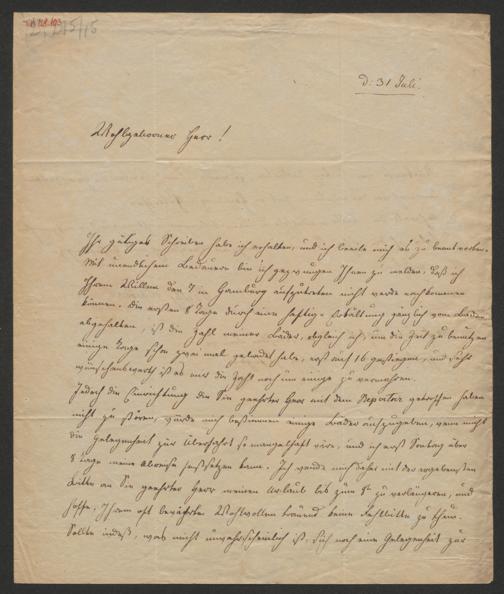 d: 31 Juli.
Wohlgeborner Herr!
Ihr gütiges Schreiben habe ich erhalten, und ich beeile mich es zu beantworten.
Mit unendlichem Bedauern bin ich gezwungen Ihnen zu melden, daß ich
Ihrem Willen den 7 in Hamburg aufzutreten nicht werde nachkommen
können. Die ersten 8 Tage durch eine heftige Erkältung gänzlich vom Baden
abgehalten, ist die Zahl meiner Bäder, obgleich ich, um die Zeit zu benutzen
einige Tage schon zwei mal gebadet habe, erst auf 16 gestiegen, und sehr
wünschenswerth ist es mir die Zahl noch um einige zu vermehren.
Jedoch die Einrichtung die Sie geehrter Herr mit dem Repertoir getroffen haben
nicht zu stören, würde mich bestimmen einige Bäder aufzugeben, wenn nicht
die Gelegenheit zur Überfahrt so mangelhaft wäre, und ich erst Sontag über
8 Tage meine Abreise festsetzen kann. Ich wende mich daher mit der ergebensten
Bitte an Sie geehrter Herr meinen Urlaub bis zum 8t zu verlängern, und
hoffe, Ihrem oft bewährten Wohlwollen trauend keine Fehlbitte zu thun.
Sollte indeß, was nicht unwahrscheinlich ist, sich noch eine Gelegenheit zur